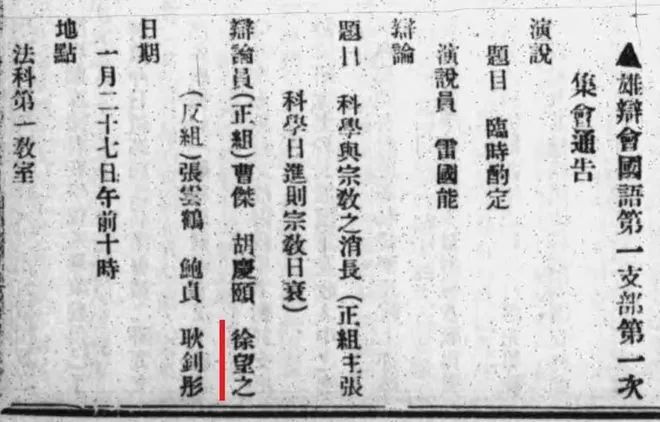 ▲雄辯會國語第一支部第一次
集會通告
演說
題目 臨時酌定
演說員 雷國能
辯論
題目 科學與宗教之消長(正組主張
科學日進則宗教日衰)
辯論員(正組)曹傑 胡慶頤 徐望之
(反組)張雲鶴 鮑貞 耿釗彤
日期
一月二十七日午前十時
地點
法科第一教室